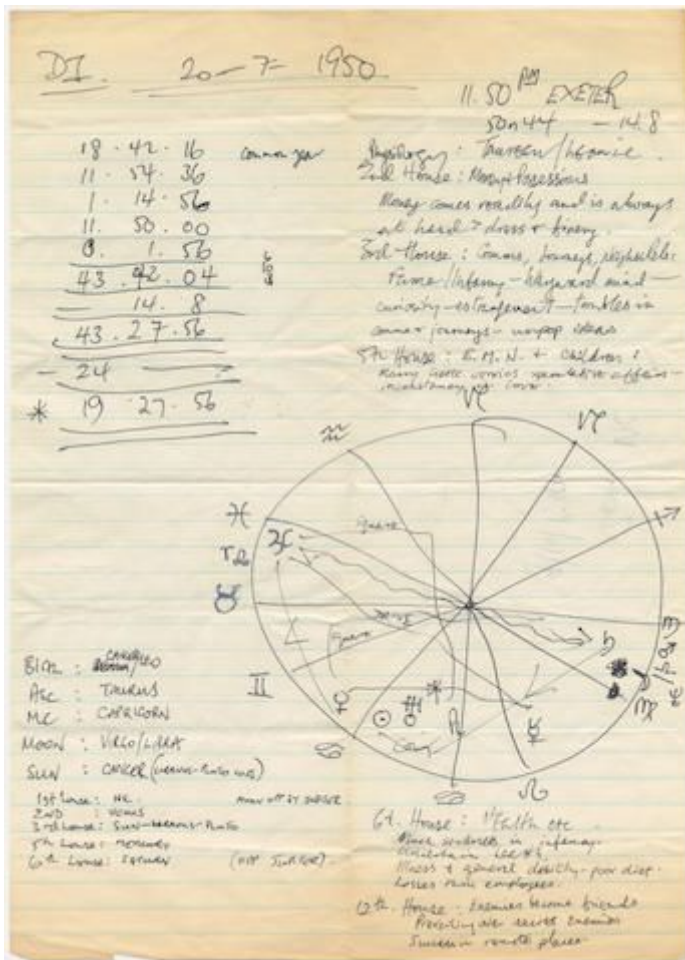 DI. 20-7-1950
11.50 PM EXETER
50n44 - 14.8
18.42.16 common year
11.54.36
1.14.56
11.50.00
0.1.56
43.42.04
14.8
43.27.56
- 24
* 19 27.56
Physiology : Taurean/Leonic
2nd House : Money + Possessions
Money comes readily and is always
at hand > dress + finery
3rd House : Comms, Journeys,
Fame/Infamy - Wayward mind -
curiosity - estrangement - troubles in
comms + journeys - unpop ideas
5th House : E.M.N. + Children :
♒ ♑ ♐
♓
♉
♊
♋
♌
♍
Square
Square
BIRTH : CANCER/LEO
ASC : TAURUS
MC : CAPRICORN
MOON : VIRGO/LIBRA
SUN : CANCER (URANUS-PLUTO CONJ)
1st house : NE.
2ND : VENUS
3rd house : SUN-URANUS-PLUTO
5th house : MERCURY
6th house : SATURN (OPP JUPITER)
6th House : Health etc
Minor sickness in infancy
Illness + general debility - poor diet -
Losses thru employees.
12th House - Enemies become friends
Prevailing over secret enemies
Success in remote places